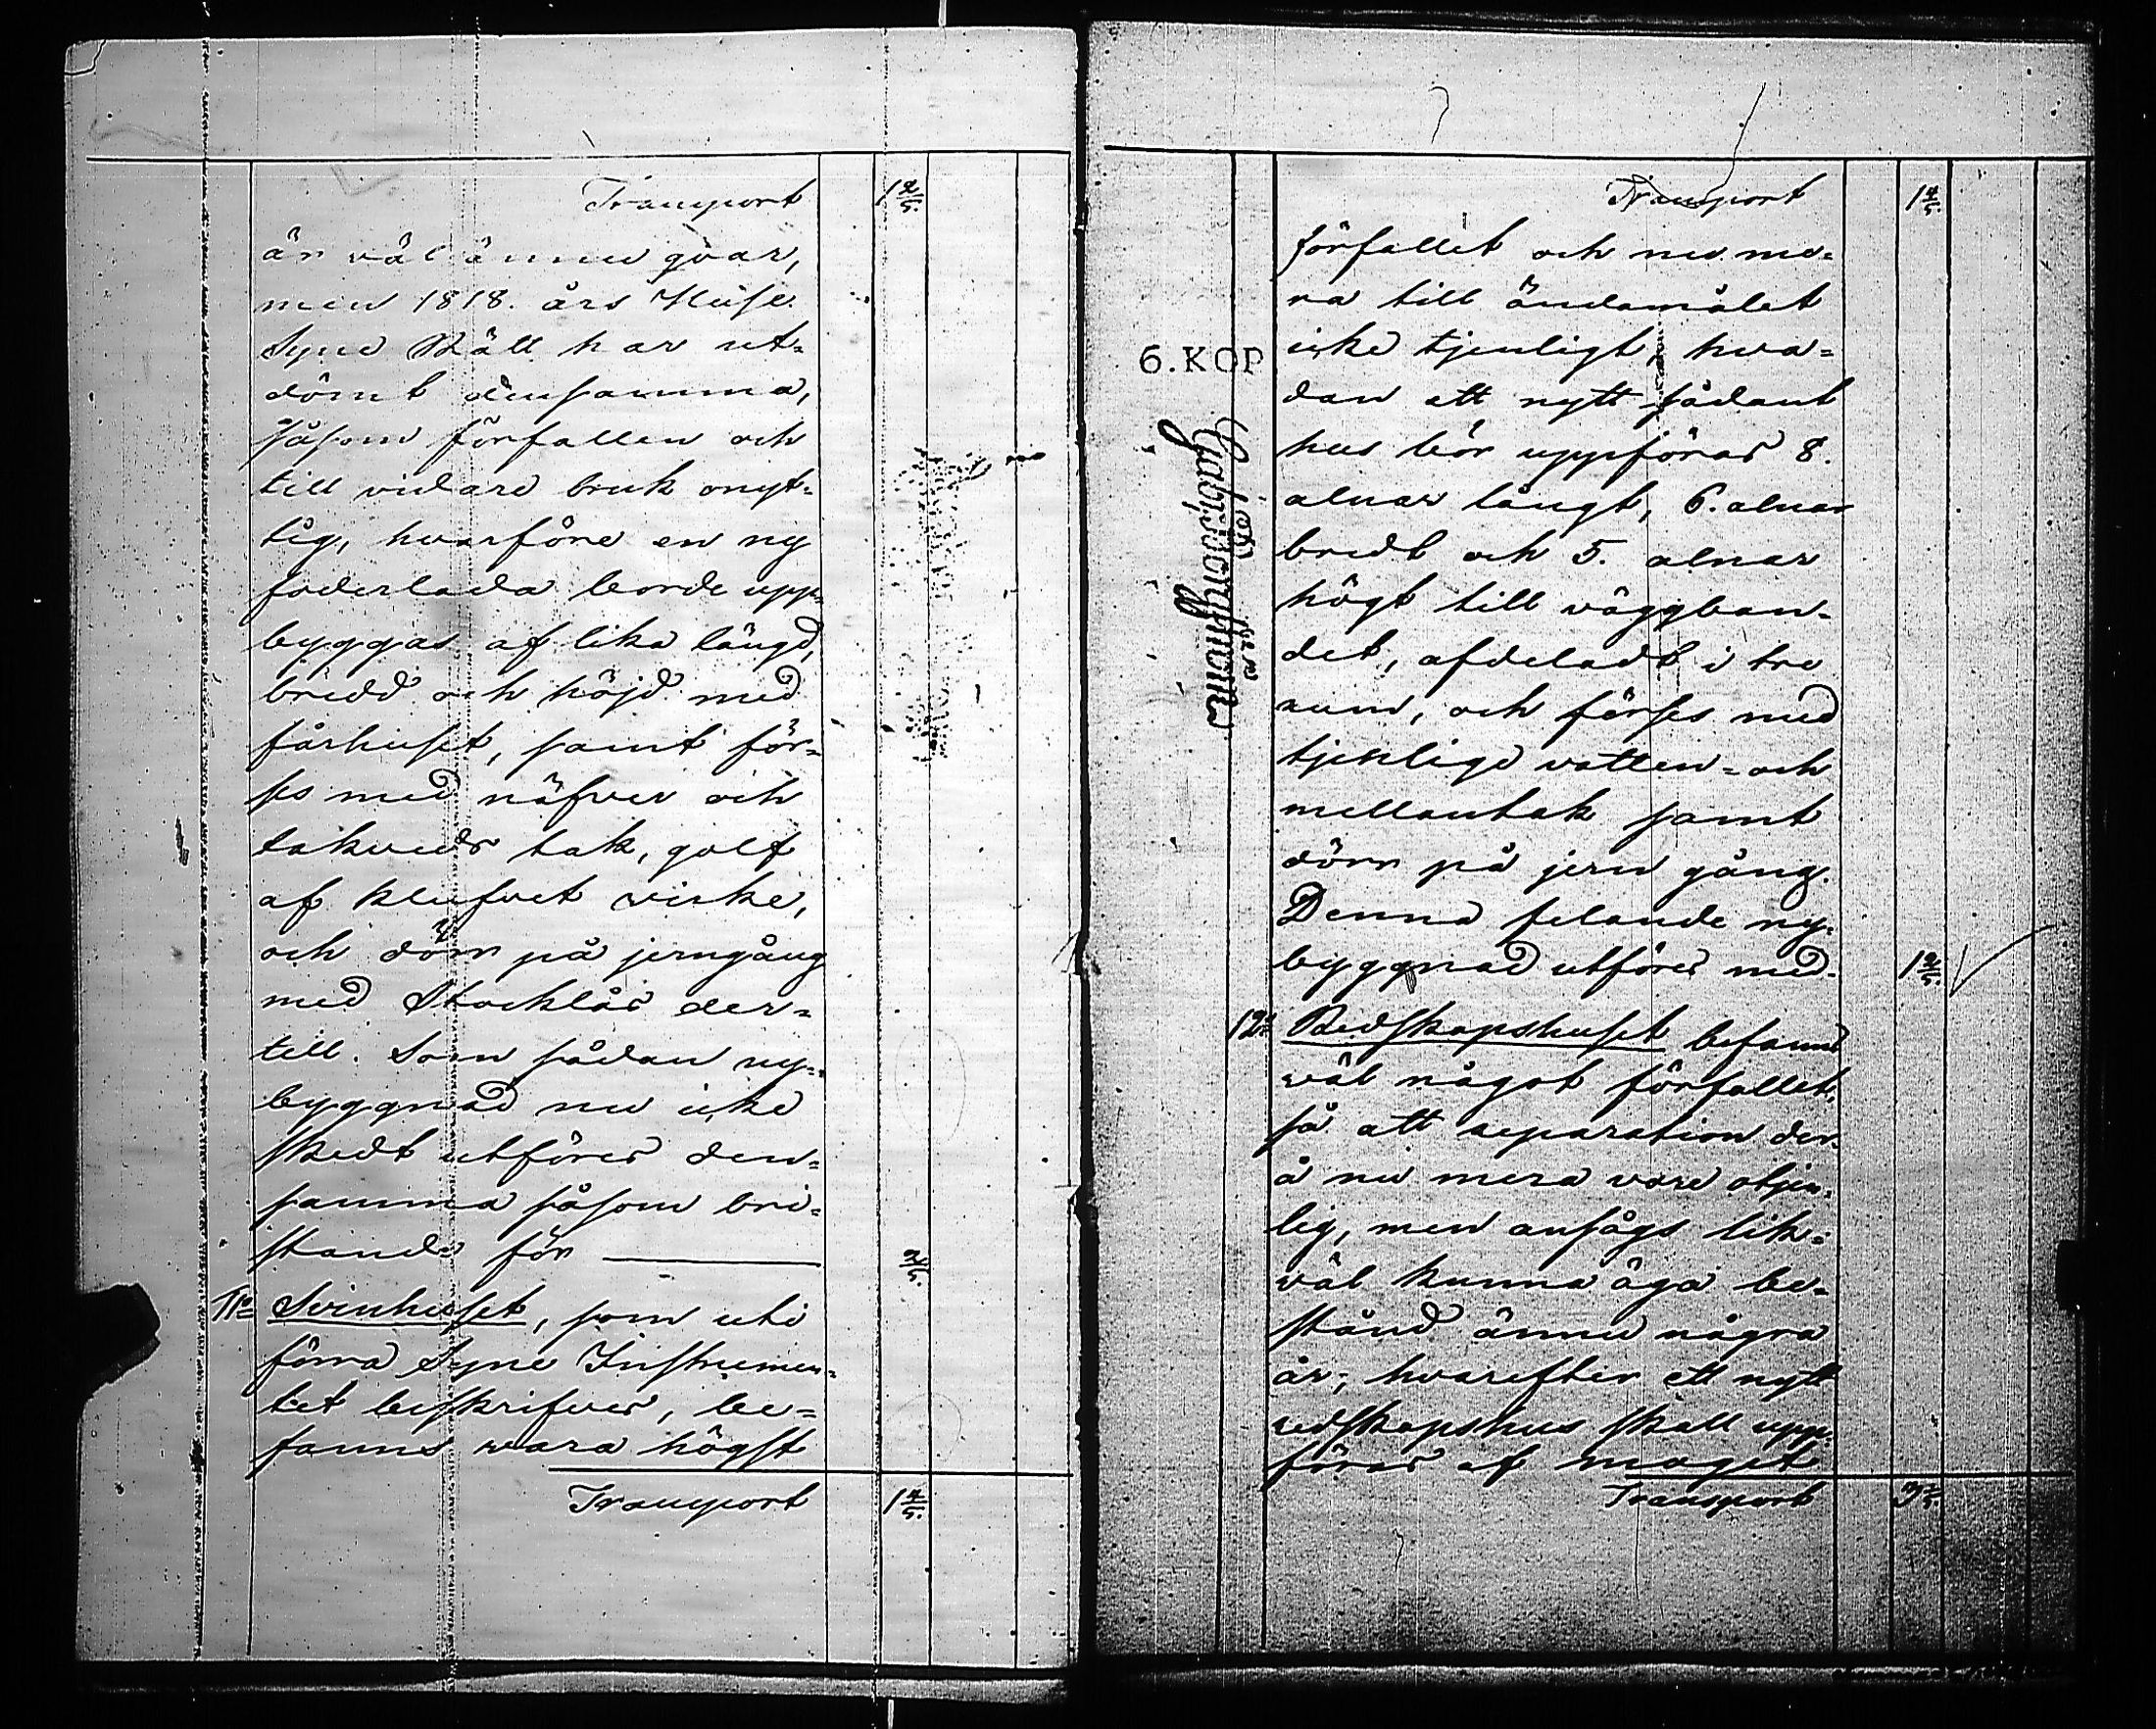 Transport 1 2/5.
är väl ännu qvar,
men 1818. års Huse
Syne Rätt har ut-
dömt densamma,
såsom förfallen och
till vidare bruk onyt-
tig, hvarföre en ny
foderlada borde upp-
byggas af lika längd,
bredd och höjd med
fårhuset, samt för-
ses med näfver och
takveds tak, golf
af klufvet virke,
och dörr på jerngång
med Stocklås der-
till. Som sådan ny-
byggnad nu icke
skedt utföres den-
samma såsom bri-
stande för 2/5.
11o Svinhuset, som uti
förra Syne Instrumen-
tet beskrifves, be-
fanns vara högst
Transport 1 4/5.
Transport 1 4/5.
förfallet och nu me-
ra till ändamålet
6. KOP
icke tjenligt, hva-
dan ett nytt sådant
hus bör uppföras 8.
alnar långt, 6. alnar
bredt och 5. alnar
högt till väggban-
det, afdeladt i tre
rum, och förses med
tjenlige vatten- och
mellantak samt
dörr på jern gång.
Denna felande ny-
byggnad utföres med 1 2/5.
12o Redskapshuset befanns
väl något förfallet,
så att reparation der-
å nu mera vore otjen-
lig, men ansågs lik-
väl kunna äga be-
stånd ännu några
år, hvarefter ett nytt
redskapshus skall upp-
föras af moget
Transport